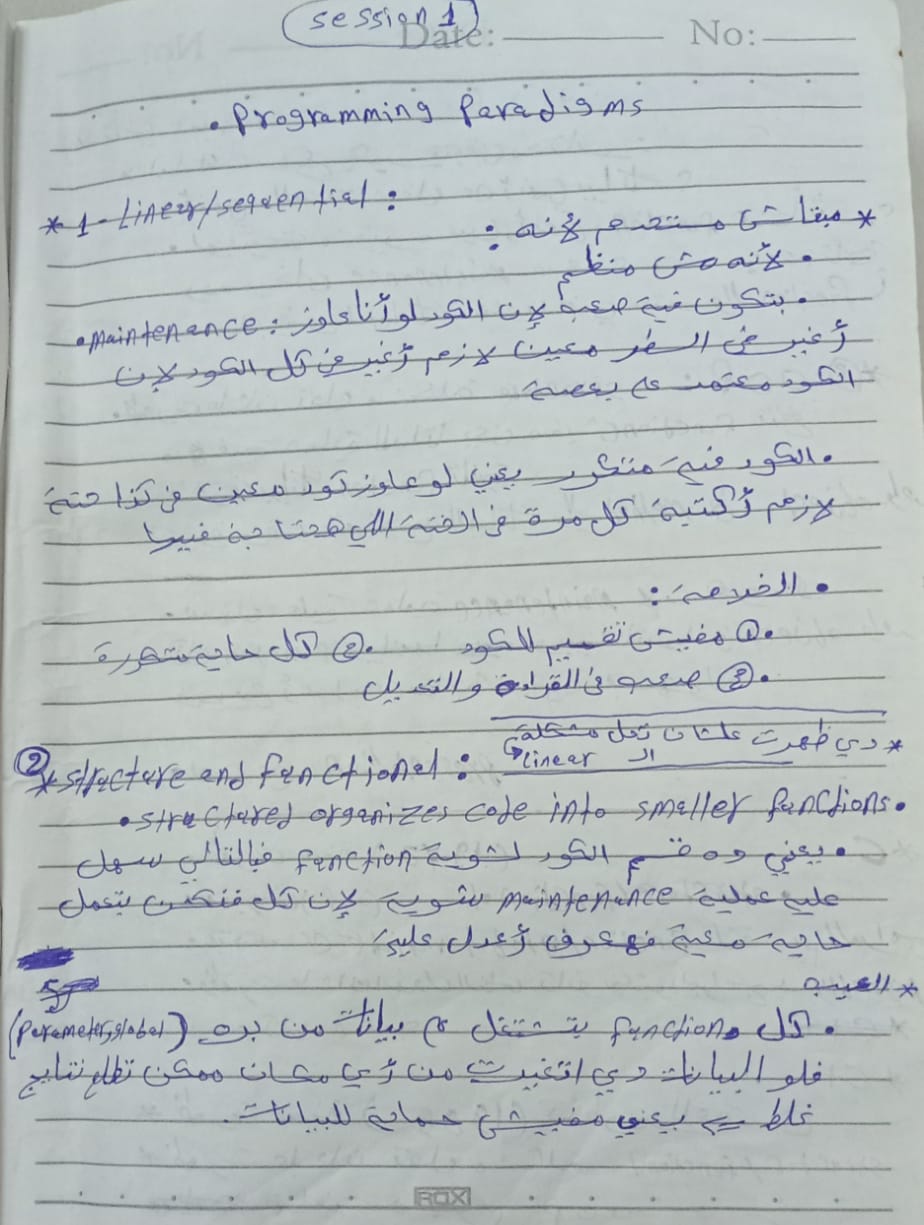 session 1
Date: No:
• Programming Paradigms
* 1- Linear/sequential :
* مبقاش مستخدم لأنه :
• لأنه مش منظم
• maintenance : بتكون فيه صعبة لإن الكود لو أنا عاوز
أغير في السطر معين لازم أغير في كل الكود لإن
الكود معتمد علي بعضه
• الكود فيه متكرر يعني لو عاوز كود معين في كذا حتة
لازم أكتبه كل مرة في الحتة اللي هحتاجه فيها
• الخلاصة :
• ① مفيش تقسيم للكود • ② كل حاجة متكررة
• ③ صعب في القراءة والتعديل
* دي ظهرت علشان تحل مشكلة
ال linear
② * structure and functional :
• structured organizes code into smaller functions.
• يعني ده قسم الكود لشوية function فبالتالي سهل
عليه عملية maintenance شوية لإن كل فنكشن بتعمل
حاجة معينة فهعرف أعدل عليها
* العيب
• كل function بتشتغل ع بيانات من بره (Parameter, global)
فلو البيانات دي اتغيرت من أي مكان ممكن تطلع نتايج
غلط يعني مفيش حماية للبيانات.
ROX